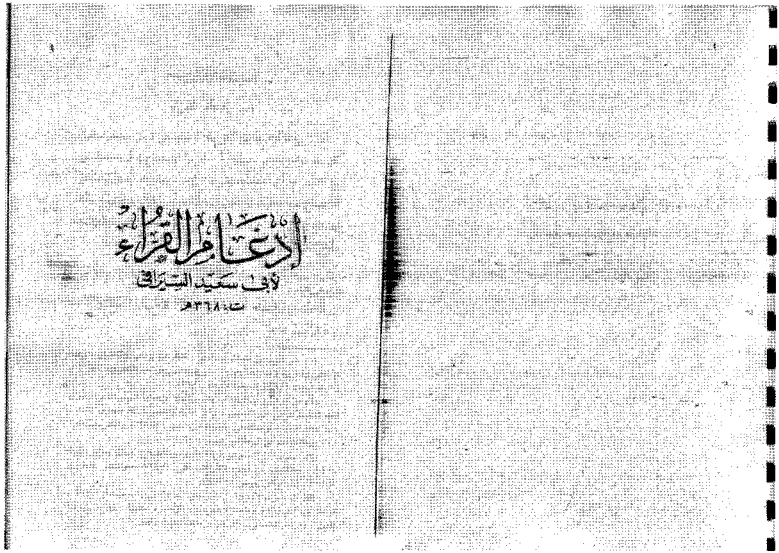 إدغام القراء
لأبي سعيد السيرافي
ت: ٣٦٨ هـ